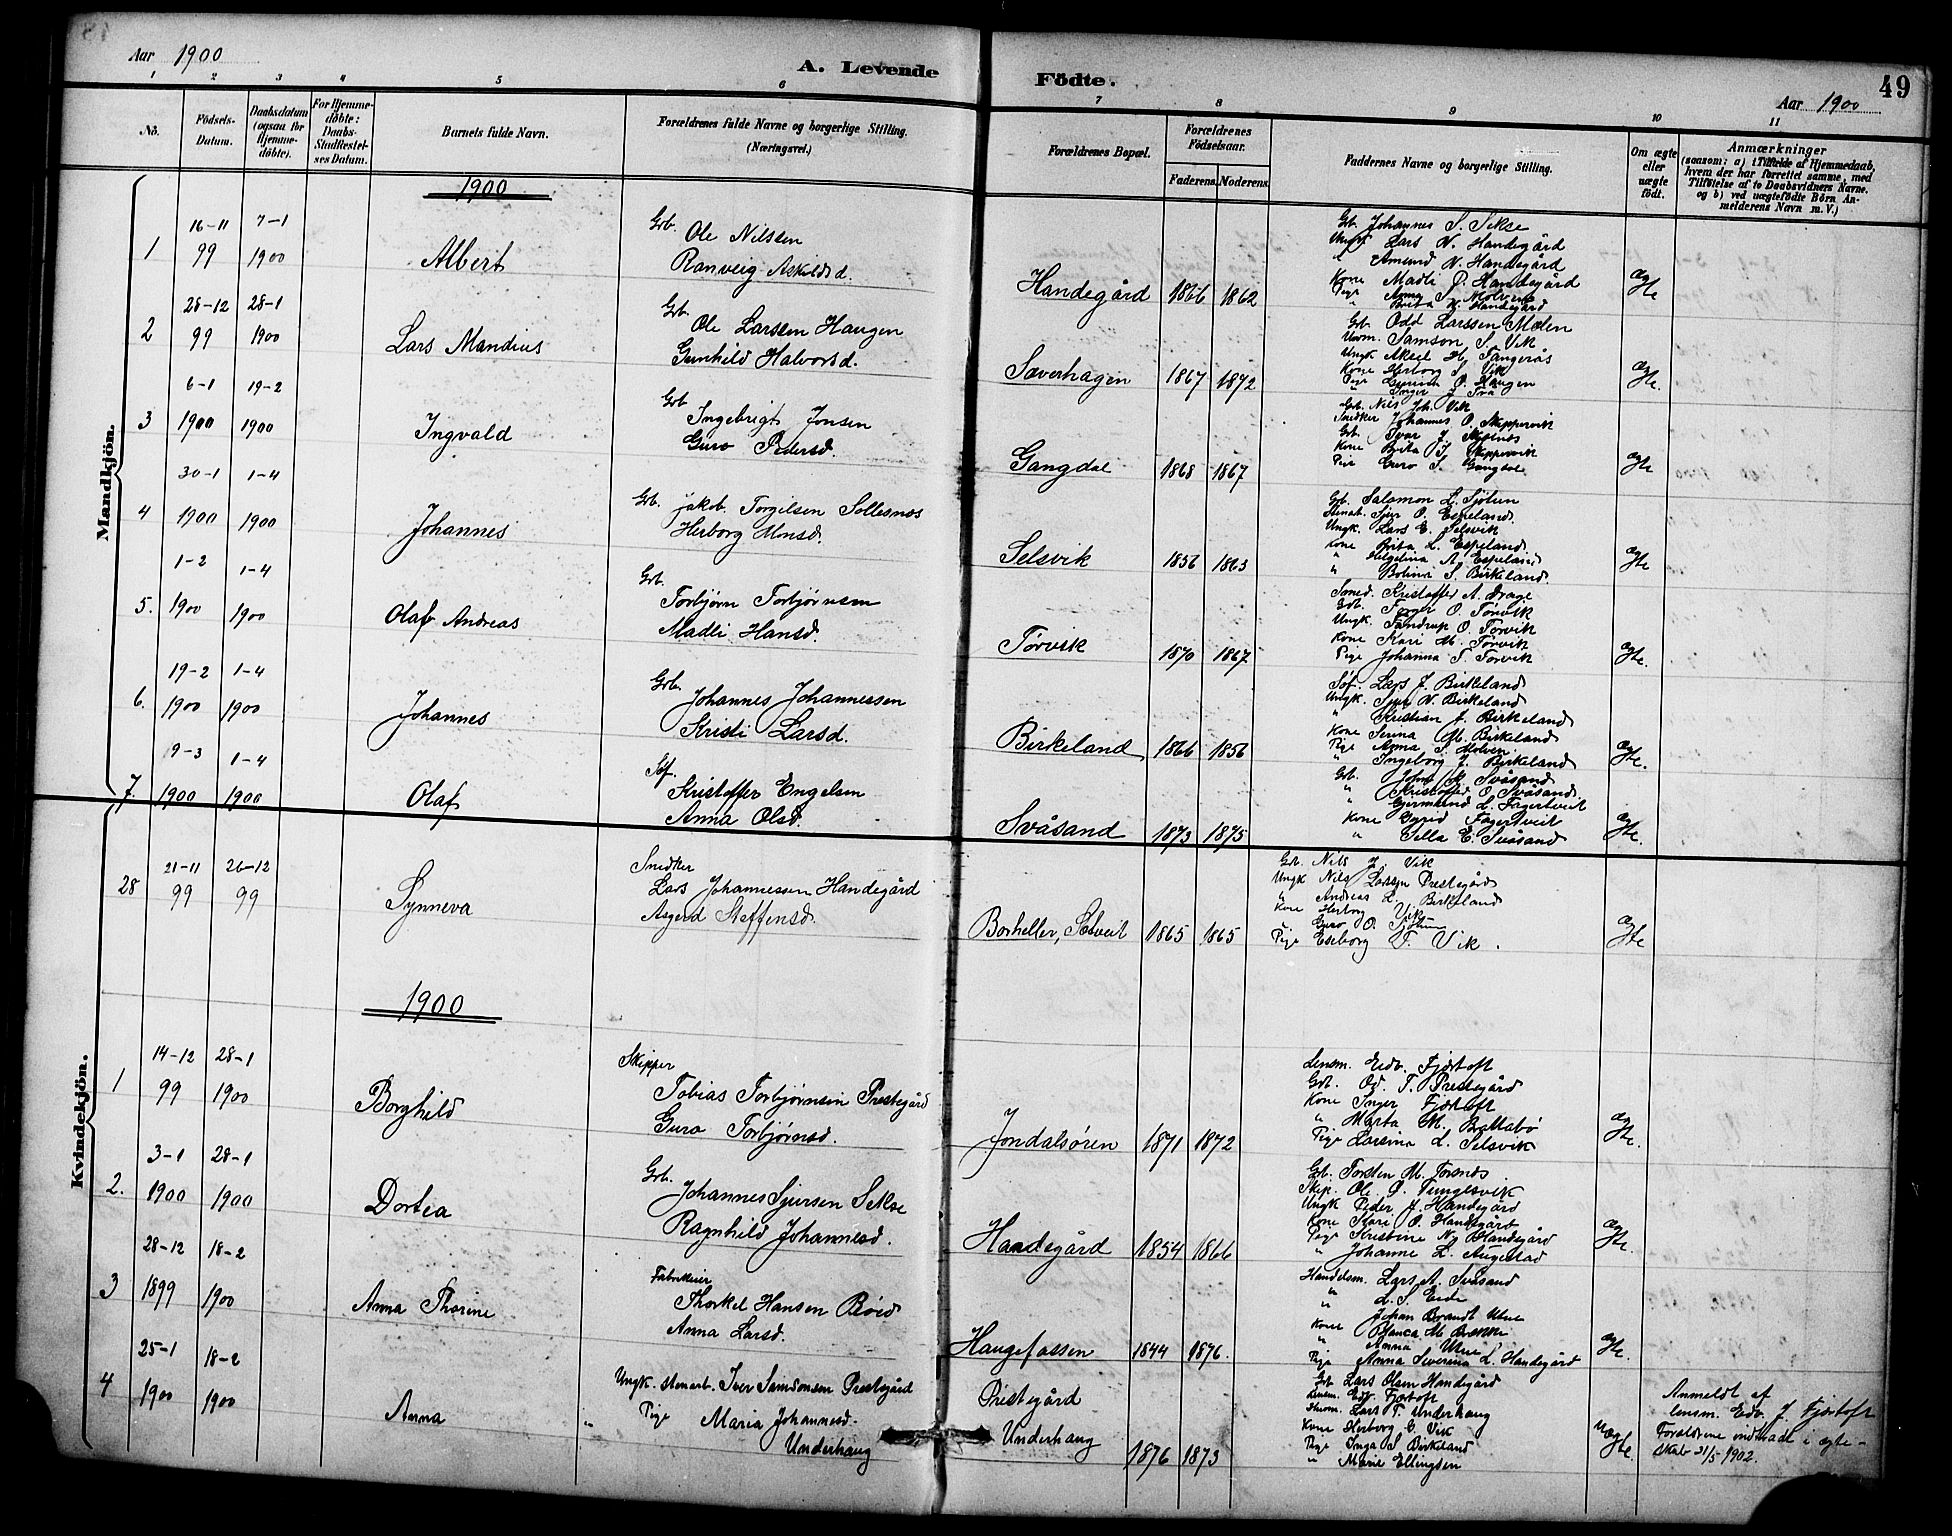 Aar 1900
A. Levende Födte.
49
Aar 1900
1 2 3 4 5 6 7 8 9 10 11
No.
Födsels-Datum.
Daabsdatum (ogsaa for Hjemme-döbte).
For Hjemme-döbte: Daabs-Stadfæstel-ses Datum.
Barnets fulde Navn.
Forældrenes fulde Navne og borgerlige Stilling.
(Næringsvei.)
Forældrenes Bopæl.
Forældrenes Födselsaar.
Faderens. Moderens.
Faddernes Navne og borgerlige Stilling.
Om ægte eller uægte födt.
Anmærkninger
(saasom: a) i Tilfælde af Hjemmedaab, hvem der har forrettet samme, med Tilföielse af to Daabsvidners Navne. og b) ved uægtefödte Börn Anmelderens Navn m. V.)
Mandkjön.
1900
1
16-11 99
7-1 1900
Albert
Grb. Ole Nilssen
Ranveig Askildsd.
Handegård 1866 1862
Grb. Johannes S. Sekse
Ungk. Lars N. Handegård
" Amund N. Handegård
Kone Madli P. Handegård
Pige Anna S. Molven
" Brita N. Handegård
ægte
2
28-12 99
28-1 1900
Lars Mandius
Grb. Ole Larssen Haugen
Gunhild Halvorsd.
Sæverhagen 1867 1872
Grb. Odd Larssen Mælen
Samson S. Vik
Ungk. Aksel H. Tangerås
Kone Herborg S. Vik
Pige O. Haugen
ægte
3
6-1 1900
19-2 1900
Ingvald
Grb. Ingebrigt Jonsen
Guro Pedersd.
Gangdal 1868 1867
Grb. Nils Joh. Vik
Snidker Johannes O. Skippervik
Grb. Ivar J.
Kone Brita J. Skippervik
Pige Guro S. Gangdal
ægte
4
30-1 1900
1-4 1900
Johannes
Grb. Jakob Torgilsen Sollesnes
Herborg Monsd.
Selsvik 1856 1863
Grb. Salamon L. Sjötun
Stenarb. Sjur O. Espeland
Ungk. Lars E. Selsvik
Kone Brita L. Espeland
" Helgelina A. Espeland
" Bolina S. Birkeland
ægte
5.
1-2 1900
1-4 1900
Olaf Andreas
Grb. Torbjørn Torbjørnsen
Madli Hansd.
Tørvik 1870 1867
Smed. Kristoffer A. Drage
Grb. Torger O. Tørvik
Ungk. Tandrup O. Tørvik
Kone Kari M. Tørvik
Pige Johanna T. Tørvik
ægte.
6.
19-2 1900
1-4 1900
Johannes
Grb. Johannes Johannessen
Kristi Larsd.
Birkeland 1866 1856
Søf. Lars J. Birkeland
Ungk. Sjur N. Birkeland
" Kristian J. Birkeland
Kone Serina M. Birkeland
Pige Anna S. Molven
" Ingeborg J. Birkeland
ægte.
7.
9-3 1900
1-4 1900
Olaf
Søf. Kristoffer Engelsen
Anna Olsd.
Svåsand 1873 1875
Grb. Johs. K. Svåsand
" Kristoffer O. Svåsand
" Gjermund L. Fagertveit
Kone Gyrid Fagertveit
" Sella E. Svåsand
ægte.
Kvindekjön.
28
21-11 99
26-12 99
Synneva
Snedker
Lars Johannessen Handegård
Asgerd Steffensd.
Borheller, Solveit 1865 1865
Grb. Nils J. Vik
Ungk Nils Larssen Prestegård
" Andreas L. Birkeland
Kone Herborg Vik
" Guro O. Sjötun
Pige Eseborg T. Vik.
ægte
1900
1
14-12 99
28-1 1900
Borghild
Skipper
Tobias Torbjørnsen Prestegård
Guro Torbjørnsd.
Jondalsøren 1871 1872
Lensm. Edv. Fjørtoft
Grb. Od. T. Prestegård
Kone Inger Fjørtoft
" Marta M. Battabø
Pige Larsina L. Selsvik
ægte.
2.
3-1 1900
28-1 1900
Dortea
Grb. Johannes Sjursen Sekse
Ragnhild Johannesd.
Handegård 1854 1866
Grb. Torsten M. Torsnes
Skip. Ole O. Tunglesvik
Ungk Peder J. Handegård
Kone Kari O. Handegård
Pige Kristine N. Handegård
" Johanne L. Augestad
ægte.
3
28-12 1899
18-2 1900
Anna Thorine
Fabrikeier
Thorkel Hansen Røed
Anna Larsd.
Haugefossen 1844 1876.
Handelsm. Lars A. Svåsand
" L. S. Eide
" Johan Brandt Utne
Kone M. Brekke
" Anna Utne
Pige Anna Severina L. Handegård
ægte.
4
25-1 1900
18-2 1900
Anna
Ungk. stenarb. Iver Samsonsen Prestegård
" Pige Maria Johannesd. Underhaug
Prestegård
Underhaug
1876 1873
Grb Lars Olsen Handegård
Lensm. Edv. Fjørtoft
Lars T. Underhaug
Kone Herborg G. Vik
Pige Inga S. Birkeland
" Marie Ellingsen
uægte.
Anmeldt af lensm. Edv. J. Fjørtoft
Forældrene indtraadt i ægte-
skab 31/5 1902.